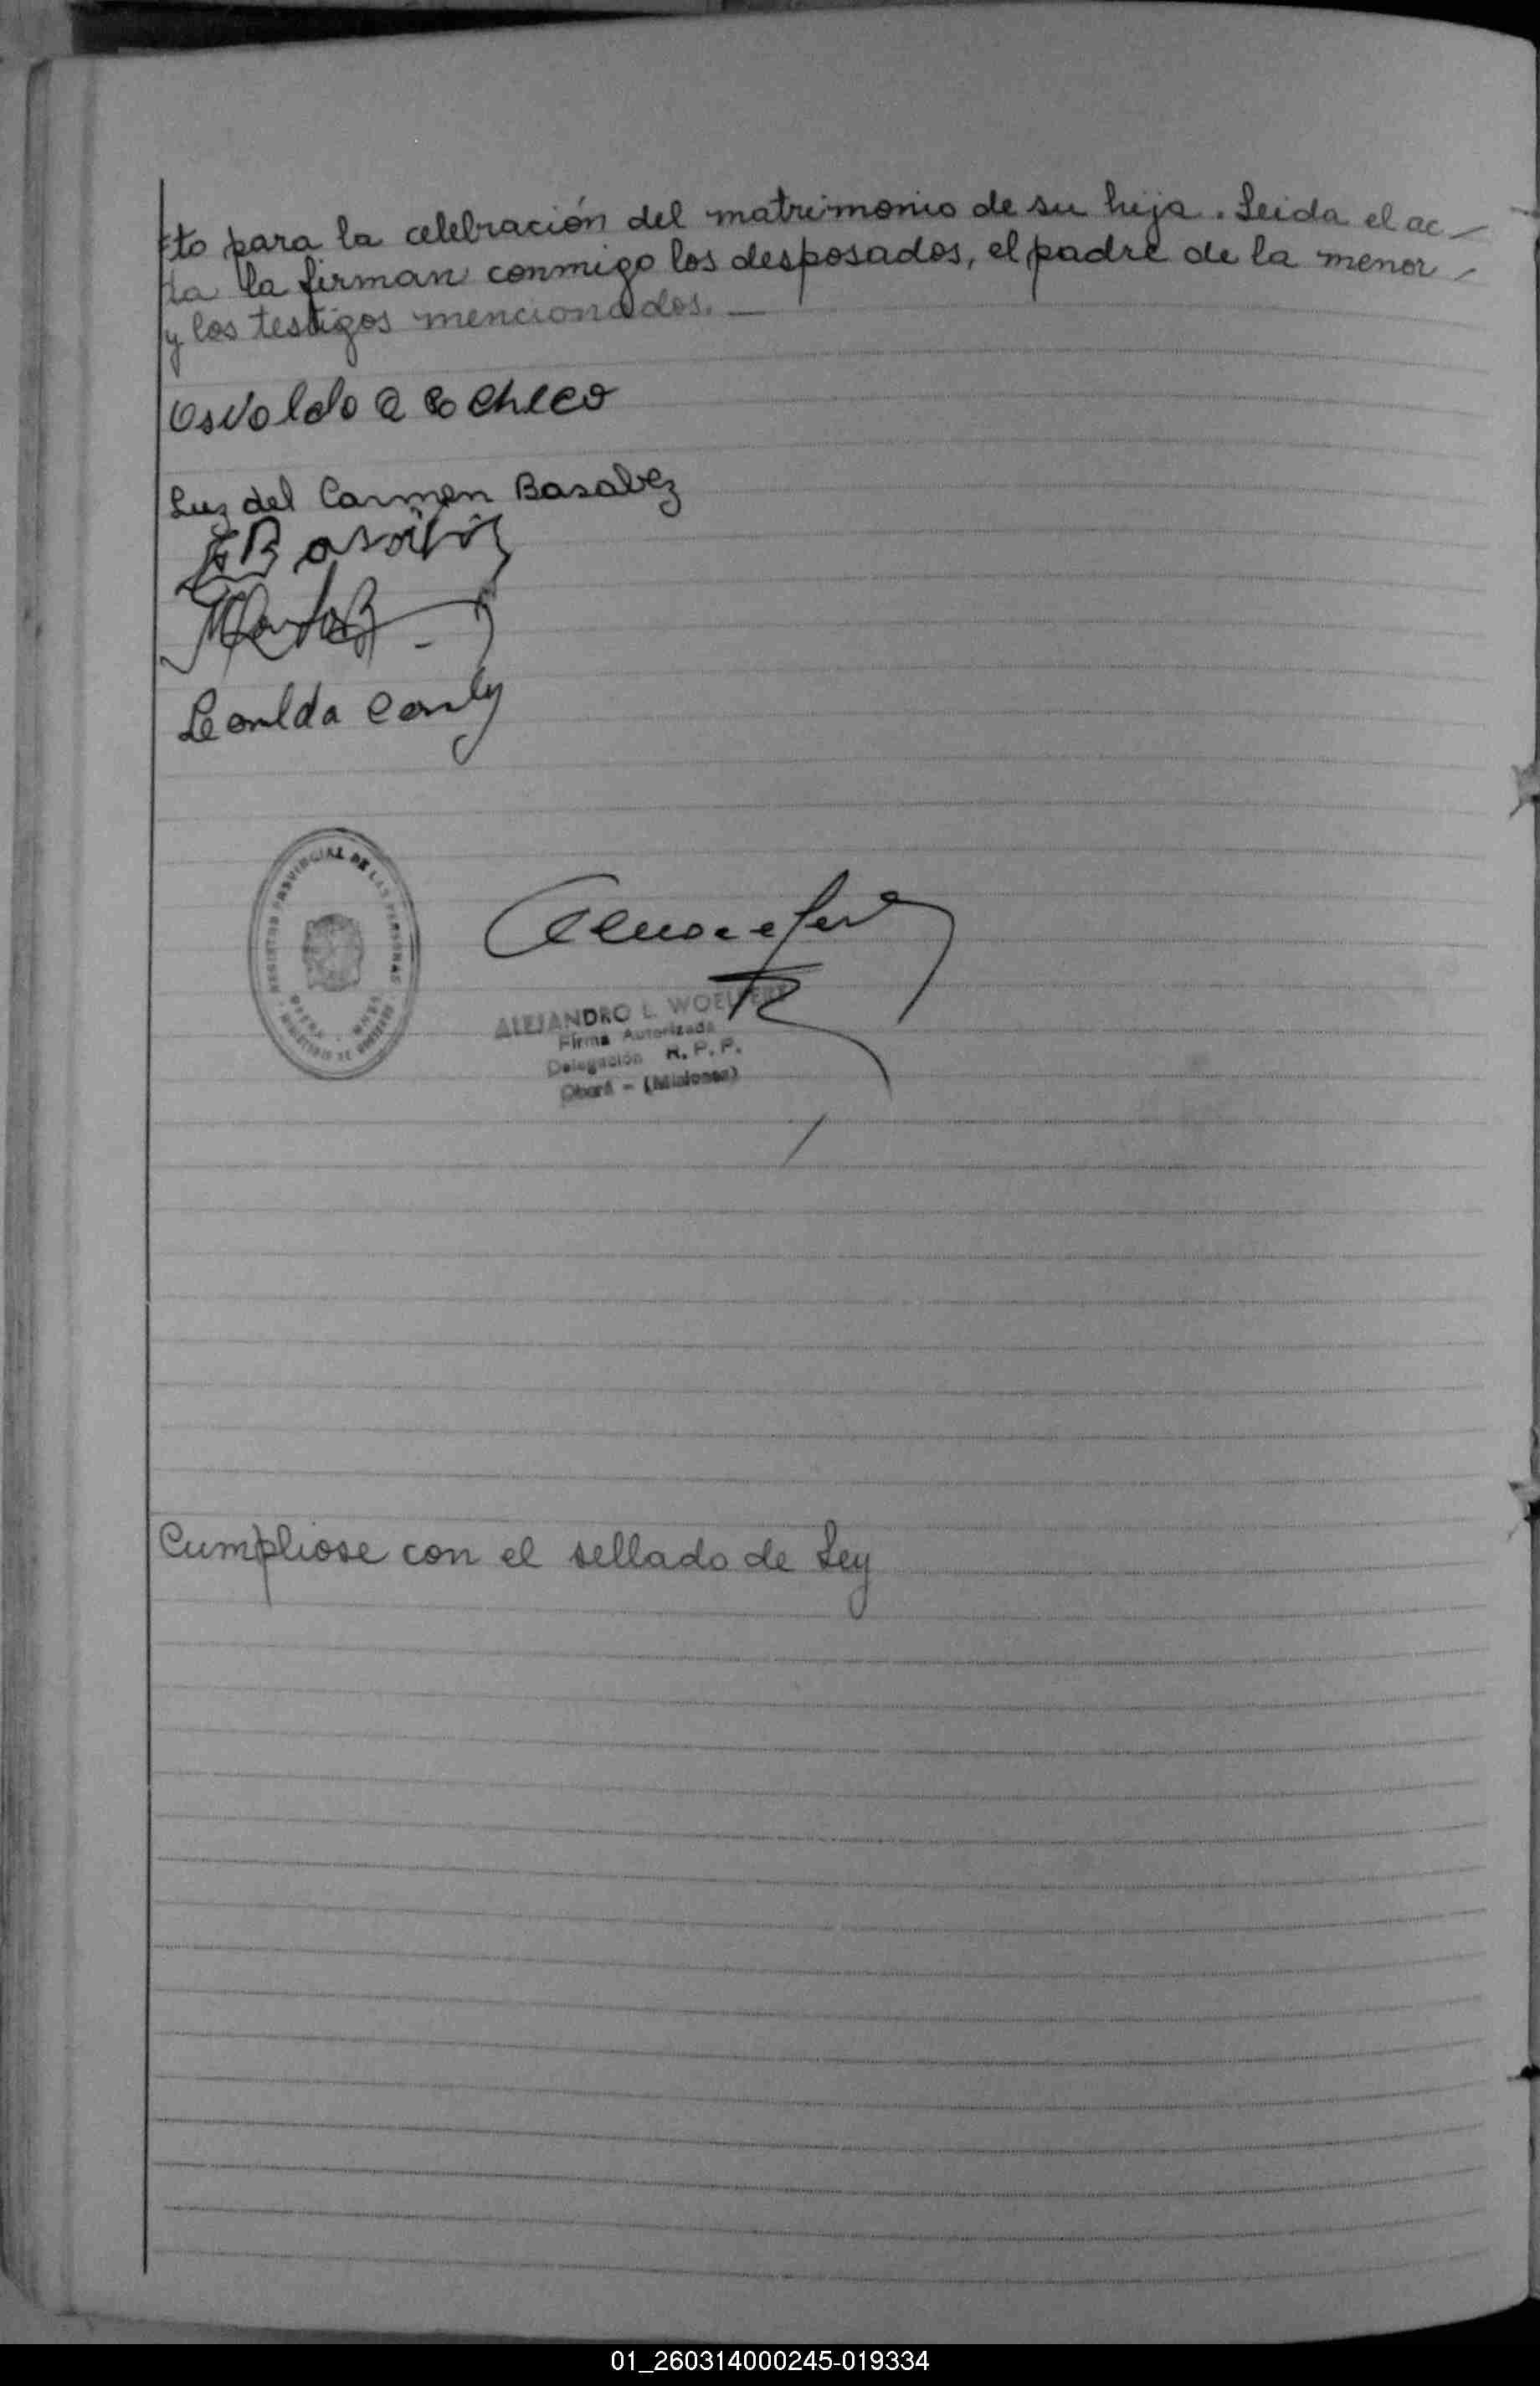 to para la celebración del matrimonio de su hija. Leida el ac
ta la firman conmigo los desposados, el padre de la menor
y los testigos mencionados. —
Osvaldo
Luz del Carmen Basabez
Leonilda
REGISTRO PROVINCIAL DE LAS PERSONAS
ALEJANDRO L. WOELFERT
Firma Autorizada
Delegación R. P. P.
Oberá - (Misiones)
Cumpliose con el sellado de Ley
01_260314000245-019334